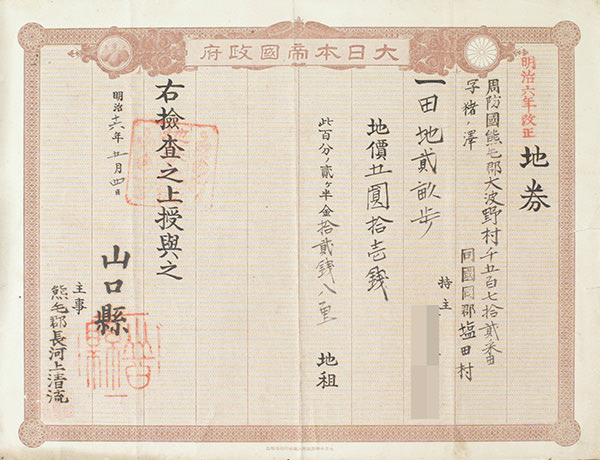 大日本帝國政府
明治六年改正
地券
周防國熊毛郡大波野村千五百七拾貳番
字猪ノ澤
同國同郡塩田村
持主
一田地貳畝歩
地價五圓拾壱錢
此百分ノ貳ヶ半金拾貳錢八厘
地租
右撿査之上授與之
明治十六年五月四日
山口縣
主事
熊毛郡長河上清流